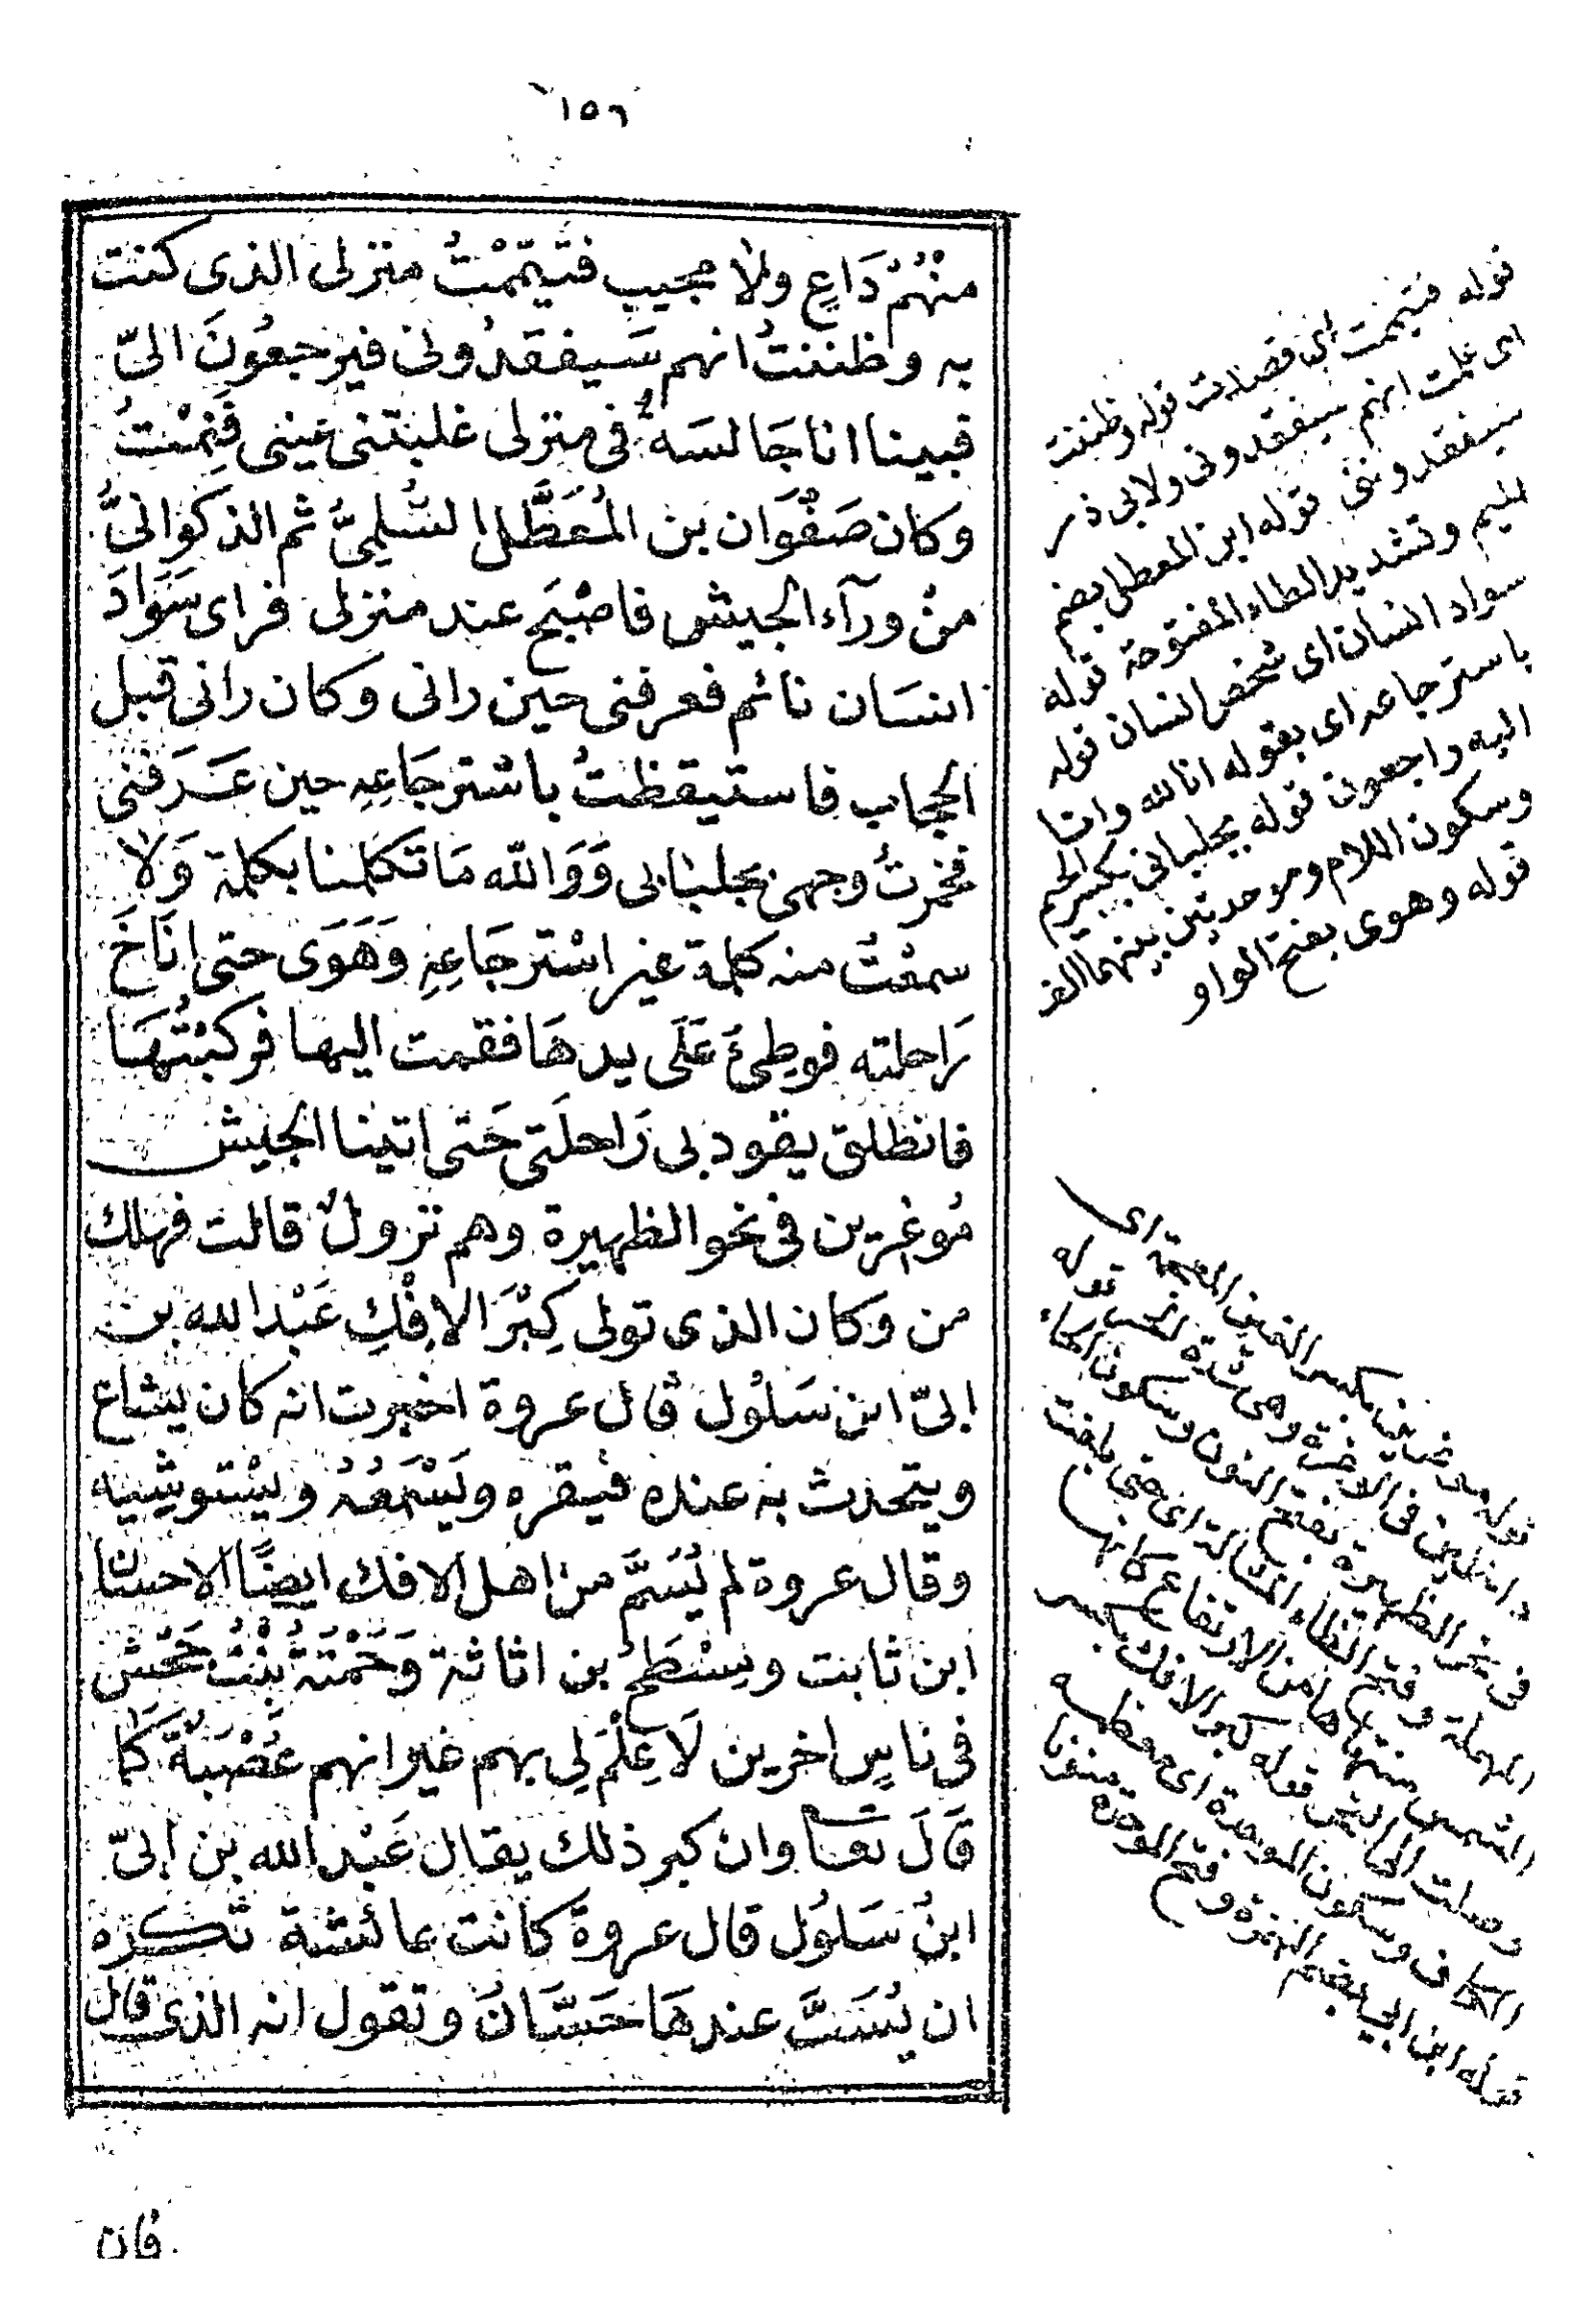 ١٥٦
منْهُمْ دَاعٍ ولا مجيب فتيمّمْتُ منزلى الذى كنت
به وظننتُ انهم سَيفقدُونى فيرجعُونَ الىّ
فبينا انا جَالسَةٌ فى منزلى غلبتنى عينى فَنِمْتُ
وكان صَفْوَان بن المُعَطَّل السُّلمِىُّ ثم الذكوانىُّ
منْ ورآء الجيش فاصْبَح عند منزلى فراى سَوَادَ
انسَان نائم فعرفنى حين رانى وكان رانى قبل
الحجاب فاستيقظتُ باسْترجَاعِهِ حين عَرَفنى
فخمرتُ وجهى بجلبابى وَوَالله مَا تكلمنا بكلمة وَلا
سمعْتُ منه كلمة غير اسْترجَاعِهِ وَهَوَى حتى انَاخَ
رَاحلته فوطِئَ عَلَى يدهَا فقمت اليها فركبْتُهَا
فانطلق يقود بى رَاحلَتى حَتى اتينا الجيش
مُوغرين فى نحو الظهيرة وهم نزولٌ قالت فهلك
من وكان الذى تولى كِبْرَ الافْكِ عَبْد الله بن
ابىّ ابن سَلُول قال عروة اخبرت انه كان يشاع
ويتحدث به عنده فيقره ويَسْمَعُهُ ويسْتوشِيه
وقال عروة لم يُسَمَّ من اهل الافك ايضًا الا حسان
ابن ثابت ومِسْطَحُ بن اثاثة وَحَمْنَةُ بنْتُ جَحْش
فى ناسٍ اخرين لَا عِلْمَ لِى بهم غير انهم عُصْبَةٌ كَمَا
قَالَ تعا وان كبر ذلك يقال عَبْد الله بن ابىّ
ابنُ سَلُول قال عروة كانت عائشة تكرَه
ان يُسَبَّ عندهَا حَسَّانَ وتقول انه الذى قال
فان
قوله فتيممت اى قصدت قوله وظننت
اى علمت انهم سيفقدونى ولابى ذر
سيفقدوننى قوله ابن المعطل بضم
الميم وتشديد الطاء المفتوحة قوله
سواد انسان اى شخص انسان قوله
باسترجاعه اى بقوله انا لله وانا
اليه راجعون قوله بجلبابى بكسر الجيم
وسكون اللام وموحدتين بينهما الف
قوله وهوى بفتح الواو
قوله موغرين بكسر الغين المعجمة اى
داخلين فى الوغرة وهى شدة الحر قوله
فى نحر الظهيرة بفتح النون وسكون الحاء
المهملة وفتح الظاء المشالة اى حين بلغت
الشمس منتهاها من الارتفاع كانها
وصلت الى النحر قوله كبر الافك بكسر
الكاف وسكون الموحدة اى معظمه
قوله ابن ابى بضم الهمزة وفتح الموحدة منونا